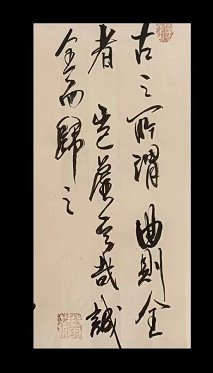 古之所謂曲則全
者豈虛言哉誠
全而歸之